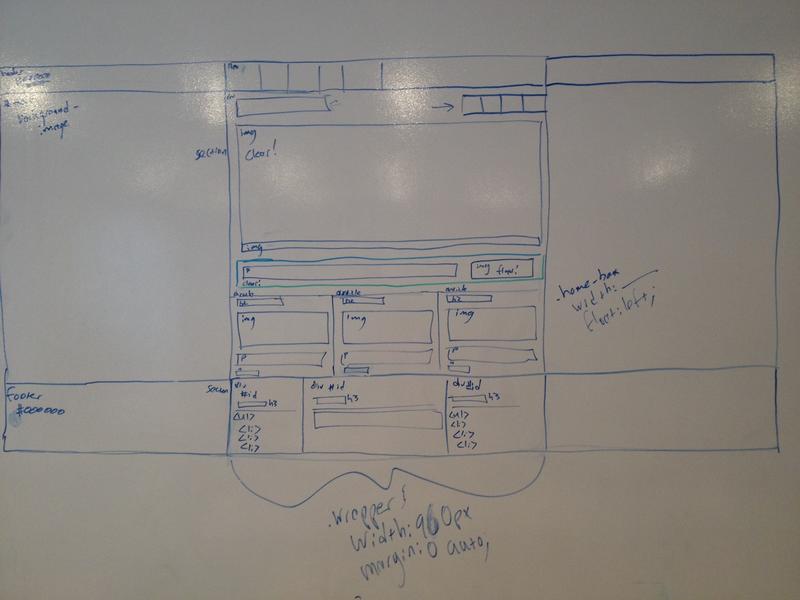 background-
image
section
img
clear!
img
P
img float!
clear!
article
article
h2
img
img
img
P
P
P
.home-box
width:
float:left;
footer
#000000
section
div
#id
h3
<ul>
<li>
<li>
<li>
div #id
h3
div#id
h3
<ul>
<li>
<li>
<li>
.wrapper {
width:960px
margin:0 auto;